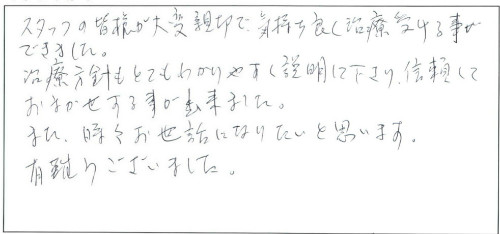 スタッフの皆様が大変親切で、気持ち良く治療受ける事が
できました。
治療方針もとてもわかりやすく説明して下さり、信頼して
おまかせする事が出来ました。
また、時々お世話になりたいと思います。
有難うございました。